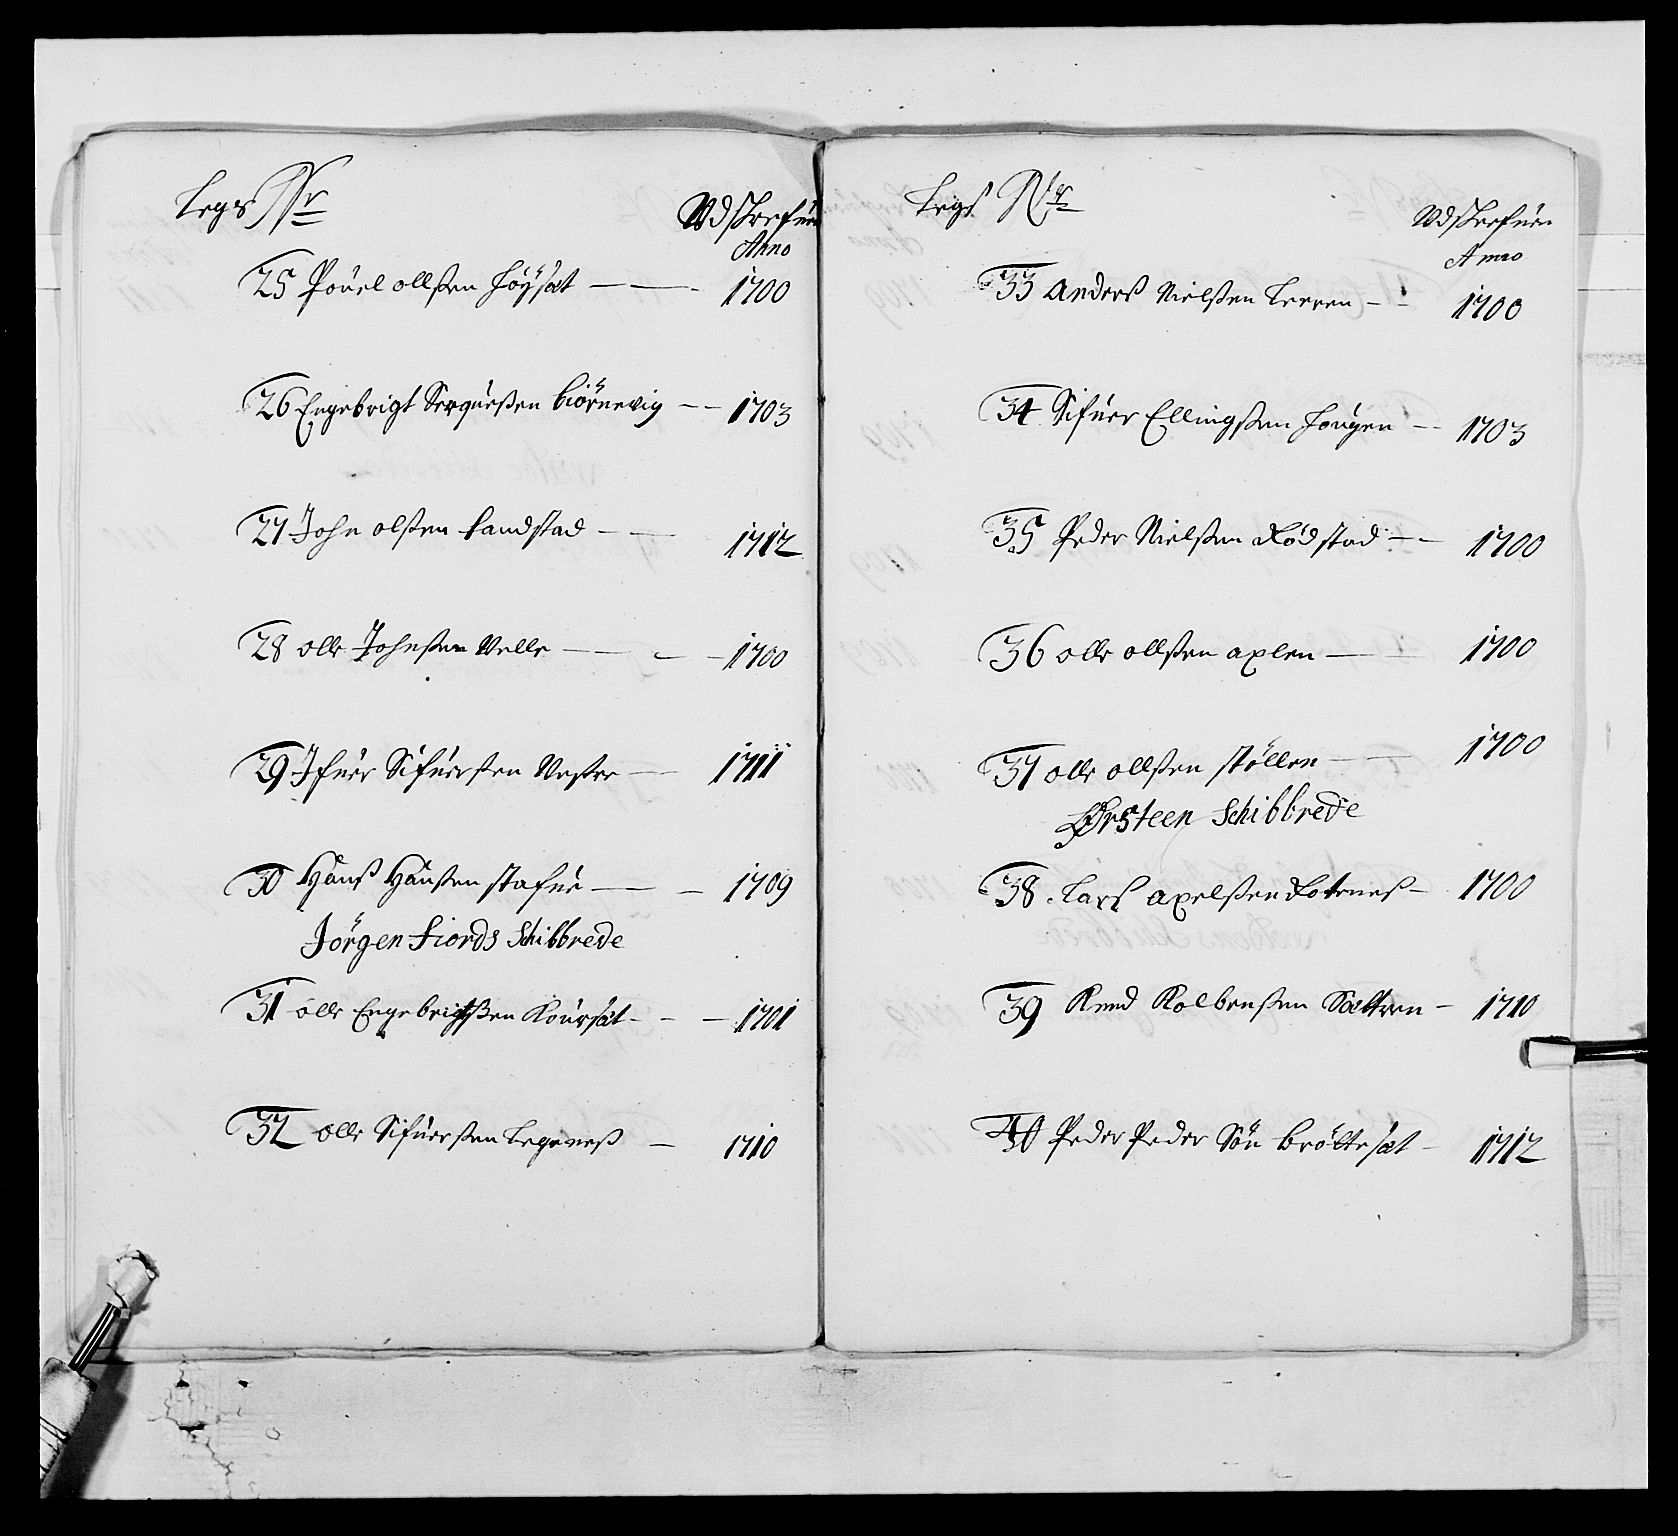 Legs Nr
Udskrefuen
Anno
25 Pouel ollßen Høysæt 1700
26 Engebrigt Serqueßen biörnevig 1703
27 John olßen Landstad 1712
28 olle Johnßen Velle 1700
29 Ifuer Sifuerßen Vestre 1711
30 Hanß Hanßen stafne 1709
Jörgen Fiords Schibbrede
31 olle Engebrigtßen Koursæt 1701
32 olle Sifuerßen Legeneß 1710
Legs Nr
Udskrefuen
Anno
33 Anderß Nielßen Leeren 1700
34 Sifuer Ellingßen Hougen 1703
35 Peder Nielßen Rødstad 1700
36 olle ollßen axlen 1700
37 olle ollßen støllen 1700
Ørsteen Schibbrede
38 Larß Axelßen Rotneß 1700
39 Knud Kolbenßen Sæltren 1710
40 Peder Peder Sön brøltesæt 1712